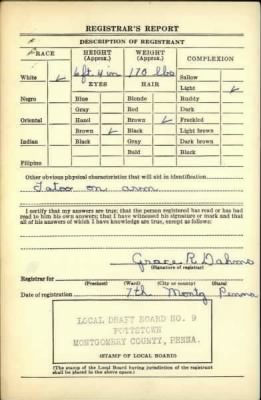 REGISTRAR'S REPORT
DESCRIPTION OF REGISTRANT
RACE HEIGHT (Approx.) WEIGHT (Approx.) COMPLEXION
6 ft. 4 in 170 lbs
White ✓ EYES HAIR Sallow
Light ✓
Negro Blue Blonde Ruddy
Gray Red Dark
Oriental Hazel Brown ✓ Freckled
Brown ✓ Black Light brown
Indian Black Gray Dark brown
Bald Black
Filipino
Other obvious physical characteristics that will aid in identification
Tatoo on arm
I certify that my answers are true; that the person registered has read or has had
read to him his own answers; that I have witnessed his signature or mark and that
all of his answers of which I have knowledge are true, except as follows:
Grace R. Dahms
(Signature of registrar)
Registrar for
(Precinct) (Ward) (City or county) (State)
7th Montg Penna
Date of registration
LOCAL DRAFT BOARD NO. 9
POTTSTOWN
MONTGOMERY COUNTY, PENNA.
(STAMP OF LOCAL BOARD)
(The stamp of the Local Board having jurisdiction of the registrant
shall be placed in the above space.)